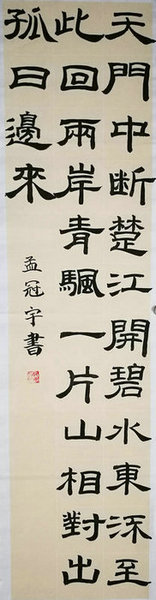 天門中断楚江開碧水東流至
此回兩岸青颿一片山相對出
孤日邊來
孟冠宇書